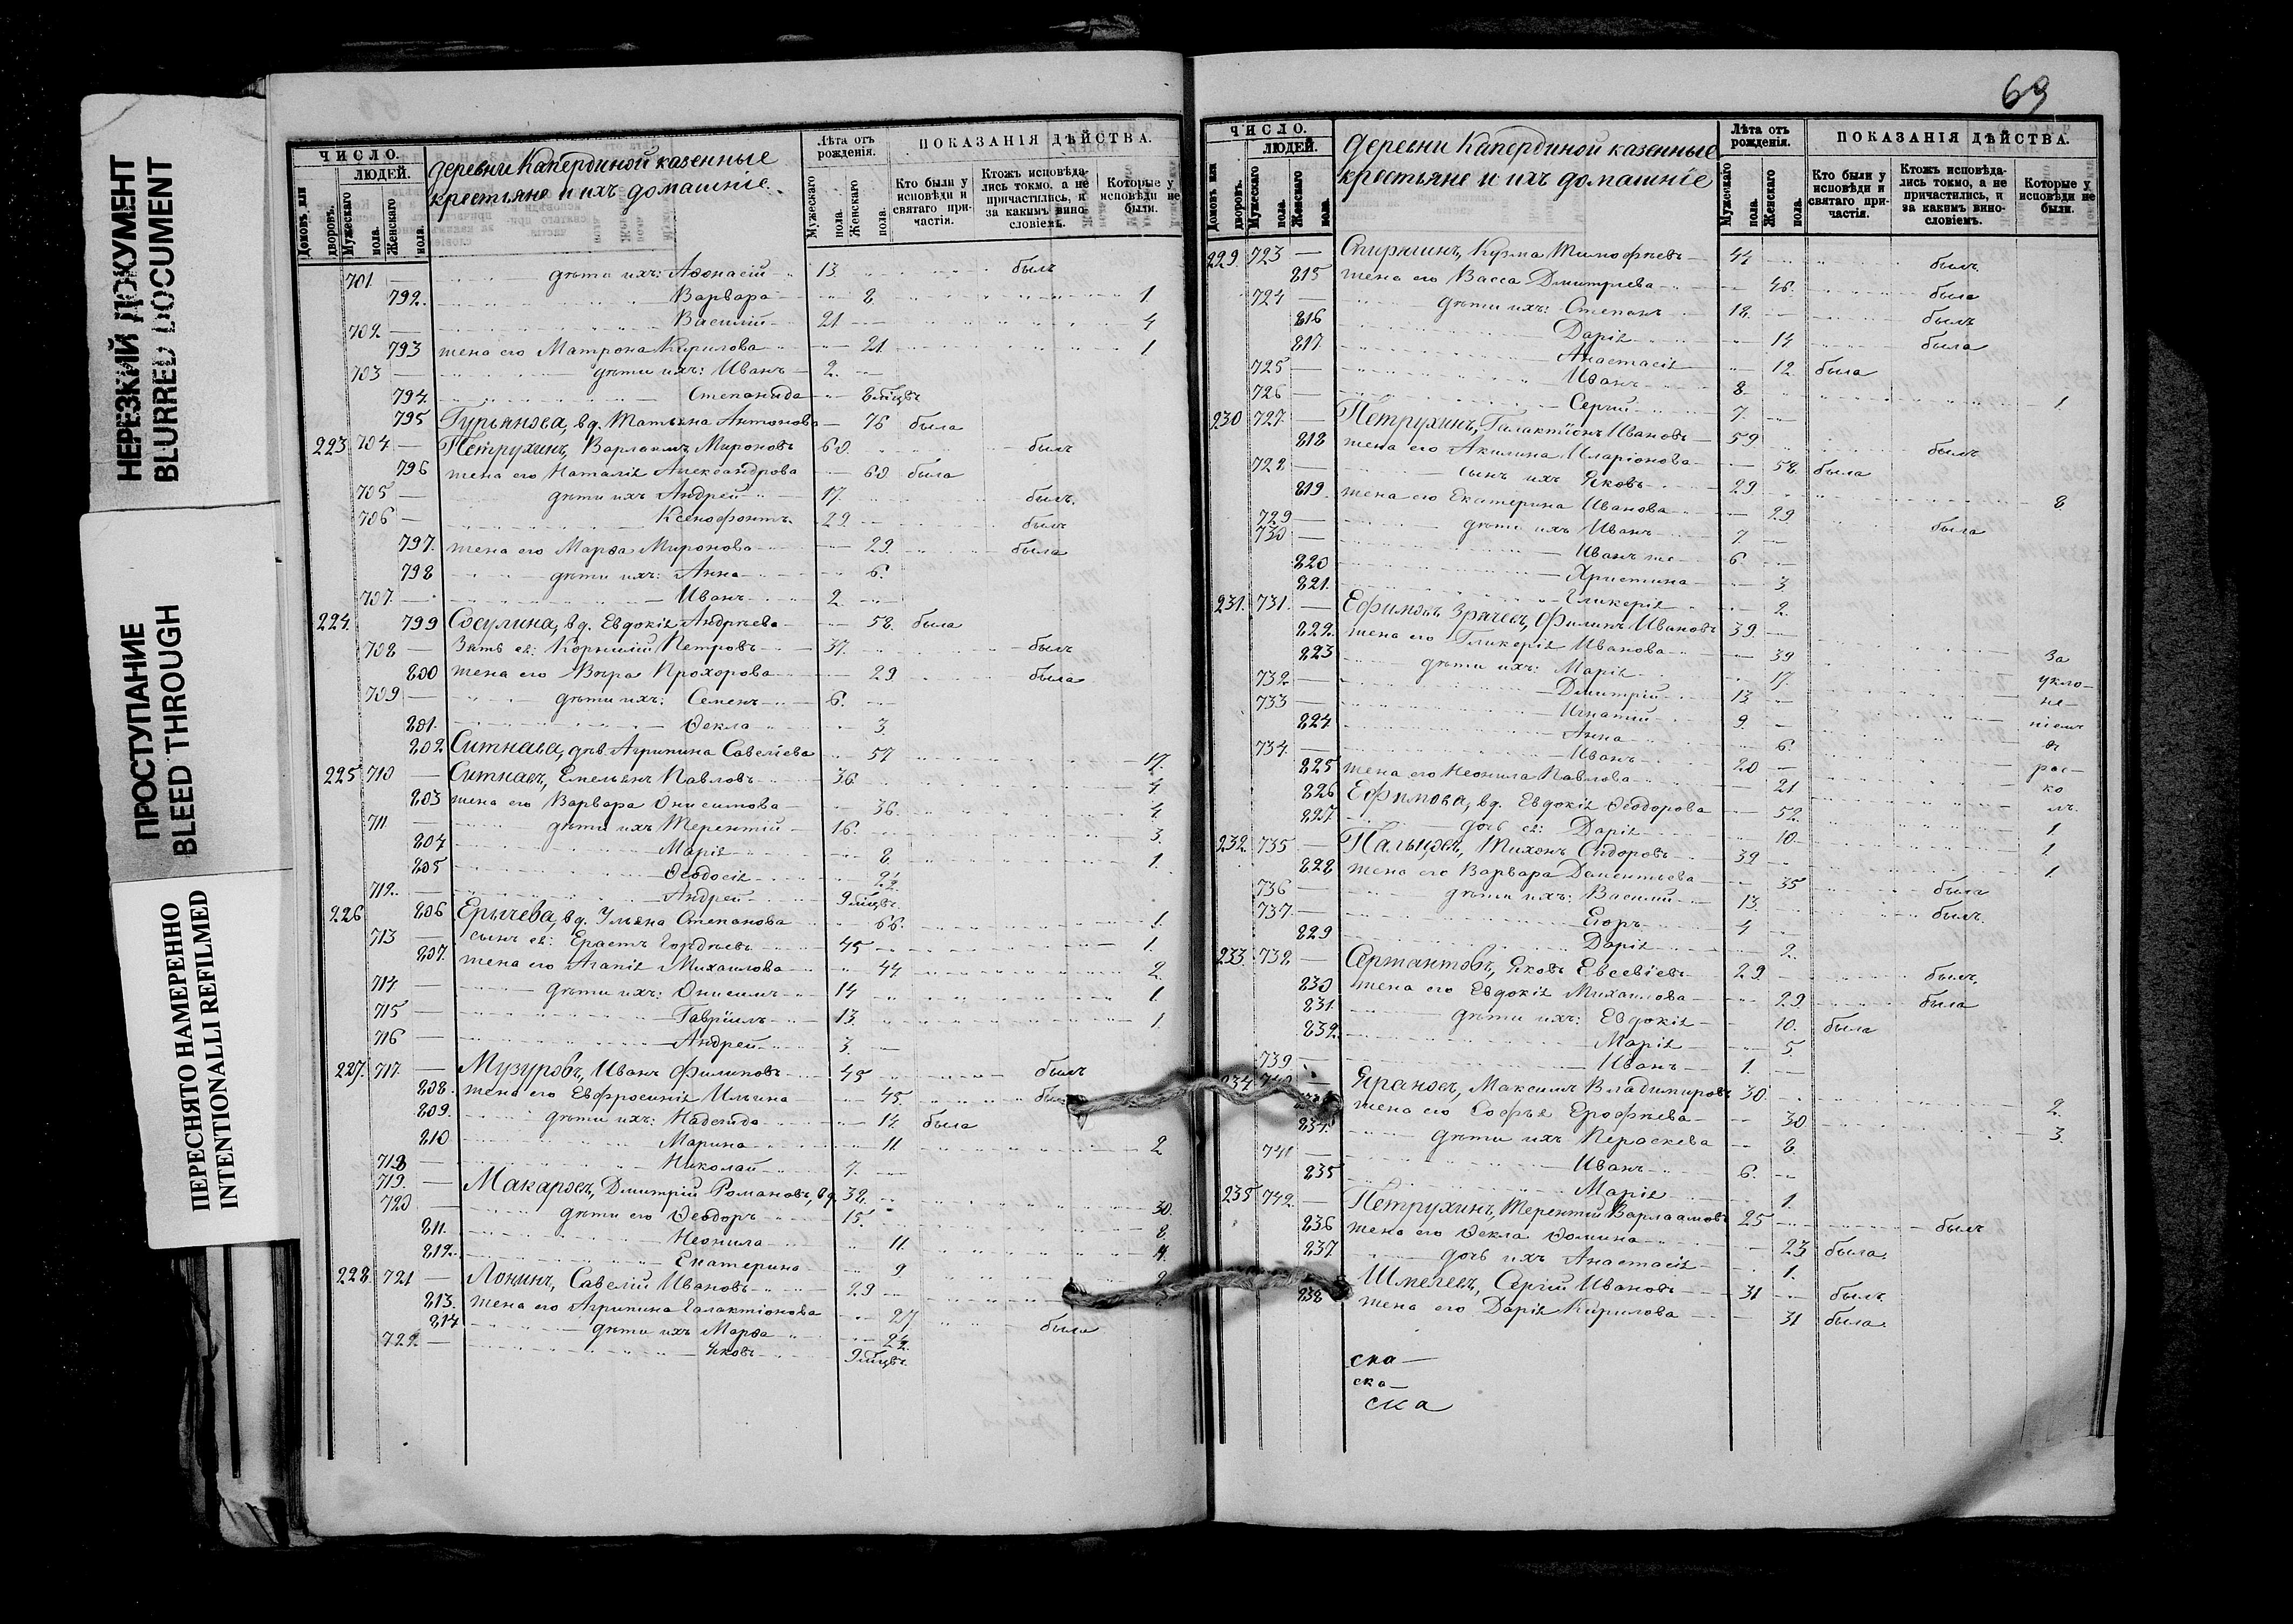 НЕРЕЗКИЙ ДОКУМЕНТ
BLURRED DOCUMENT
ПРОСТУПАНИЕ
BLEED THROUGH
ПЕРЕСНЯТО НАМЕРЕННО
INTENTIONALLI REFILMED
ЧИСЛО.
ЛЮДЕЙ.
Домовъ или дворовъ.
Мужескаго пола.
Женскаго пола.
деревни Капердиной казенные
крестьяне и ихъ домашніе
Лѣта отъ рожденія.
Мужескаго пола.
Женскаго пола.
ПОКАЗАНІЯ ДѢЙСТВА.
Кто были у исповѣди и святаго причастія.
Ктожъ исповѣдались токмо, а не причастились, и за какимъ винословіемъ.
Которые у исповѣди не были.
701 — дѣти ихъ: Аѳонасій 13 былъ
792. Варвара 8 1
702 — Василій 21 4
793 жена его Матрона Кирилова 21 1
703 — дѣти ихъ: Иванъ 2
794. Степанида 8 мѣцвъ
795 Гурьянова, вд. Татьяна Антонова 76 была
223 704 — Петрухинъ, Варлаамъ Мироновъ 60 былъ
796 жена его Наталія Александрова 60 была
705 — дѣти ихъ Андрей 17 былъ
706 — Ксенофонтъ 29 былъ
797. жена его Марѳа Миронова 29 была
798 дѣти ихъ: Анна 6
707 — Иванъ 2
224 799 Сосулина, вд. Евдокія Андреева 58 была
708 — Зять ея: Корнилій Петровъ 37 былъ
800 жена его Вѣра Прохорова 29 была
709 — дѣти ихъ: Семенъ 6
801 Ѳекла 3
802 Ситнова, дѣв. Агрипина Савеліева 57 17
225 710 — Ситновъ, Емельянъ Павловъ 36 4
803 жена его Варвара Онисимова 36 4
711 — дѣти ихъ Терентій 16 3
804 Марія 8 1
805 Ѳеодосія 2½
712 — Андрей 9 мѣцвъ
226 806 Ерычева, вд. Ульяна Степанова 66 1
713 — сынъ ея: Ерастъ Гордѣевъ 45 1
807. жена его Агапія Михаилова 44 2
714 — дѣти ихъ: Онисимъ 14 1
715 — Гавріилъ 13 1
716 — Андрей 3
227 717 — Музуровъ, Иванъ Филиповъ 45 былъ
808. жена его Евфросинія Ильина 45
809. дѣти ихъ: Надежда 14 была
810 Марина 11 2
718 — Николай 7
719 — Макаровъ, Дмитрій Романовъ, вд. 38 30
720 — дѣти его Ѳеодоръ 15 8
811. Неонила 11 4
812. Екатерина 9
228 721 — Лонинъ, Савелій Ивановъ 29
813. жена его Агрипина Галактіонова 27 была
814 дѣти ихъ Марѳа 2½
722 — Яковъ 9 мѣцвъ
69
ЧИСЛО.
ЛЮДЕЙ.
Домовъ или дворовъ.
Мужескаго пола.
Женскаго пола.
деревни Капердиной казенные
крестьяне и ихъ домашніе
Лѣта отъ рожденія.
Мужескаго пола.
Женскаго пола.
ПОКАЗАНІЯ ДѢЙСТВА.
Кто были у исповѣди и святаго причастія.
Ктожъ исповѣдались токмо, а не причастились, и за какимъ винословіемъ.
Которые у исповѣди не были.
229 723 — Спирюшинъ, Кузма Тимофѣевъ 44 былъ
815 жена его Васса Дмитріева 46 была
724 — дѣти ихъ: Степанъ 18 былъ
816 Дарія 14 была
817 Анастасія 12 была
725 — Иванъ 8 1
726 — Сергій 7
230 727 — Петрухинъ, Галактіонъ Ивановъ 59 былъ
818 жена его Акилина Иларіонова 58 была
728 — сынъ ихъ Яковъ 29 8
819. жена его Екатерина Иванова 29 была
729 — дѣти ихъ Иванъ 7
730 — Иванъ же 6
820 Христина 3
821. Гликерія 2
231 731 — Ефимовъ Зрячевъ, Филипъ Ивановъ 39 За
822. жена его Гликерія Иванова 39 укло-
823 дѣти ихъ: Марія 17 не-
732 — Дмитрій 13 ніемъ
733 — Игнатій 9 въ
824 Анна 6 рас-
734 — Иванъ 20 ко
825 жена его Неонила Павлова 21 лъ
826 Ефимова, вд. Евдокія Ѳеодорова 52 1
827. дочь ея: Дарія 10 1
232 735 — Пальцовъ, Тихонъ Сидоровъ 39 1
828 жена его Варвара Даментьева 35 была
736 — дѣти ихъ: Василій 13 былъ
737 — Егоръ 4
829 Дарія 2
233 738 — Сержантовъ, Яковъ Евсевіевъ 29 былъ
830 жена его Евдокія Михаилова 29 была
831. дѣти ихъ: Евдокія 10 была
832. Марія 5
739 — Иванъ 1
234 740 — Ярановъ, Максимъ Владимировъ 30 2
жена его Софья Ерофѣева 30 3
834. дѣти ихъ Параскева 8
741 — Иванъ 6
835 Марія 1
235 742 — Петрухинъ, Терентій Варлаамовъ 25 былъ
836 жена его Ѳекла Ѳомина 23 была
837. дочь ихъ Анастасія 1
Шмелевъ, Сергій Ивановъ 31 былъ
838 жена его Дарія Кирилова 31 была
ска
ска
ска